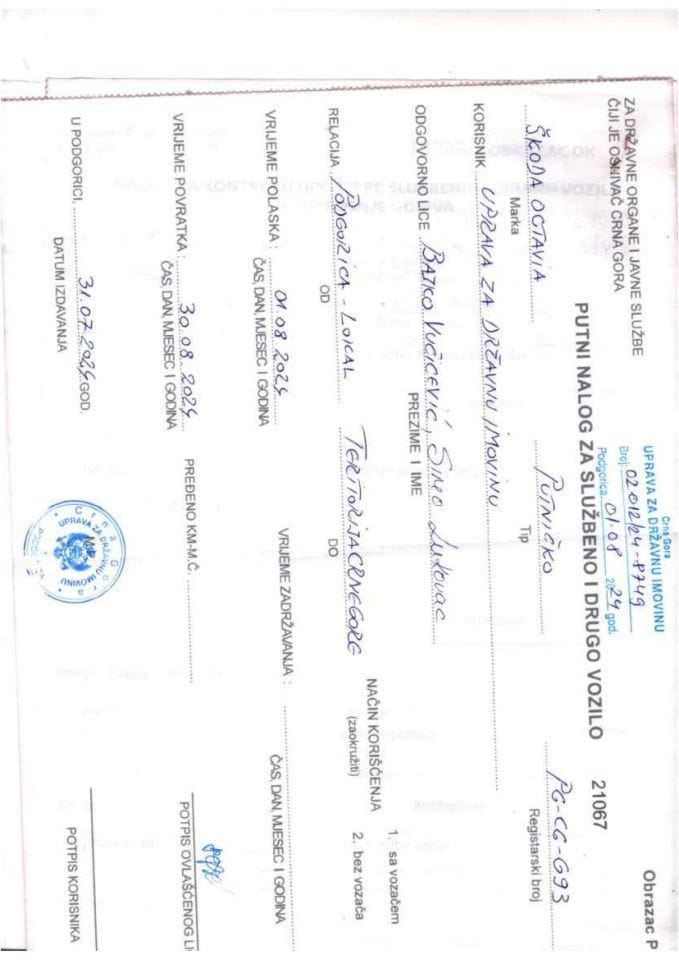 Obrazac P
ZA DRŽAVNE ORGANE I JAVNE SLUŽBE
ČIJI JE OSNIVAČ CRNA GORA
Crna Gora
UPRAVA ZA DRŽAVNU IMOVINU
Broj: 02 012/24-8749
Podgorica, 01.08 2024 god.
PUTNI NALOG ZA SLUŽBENO I DRUGO VOZILO 21067
ŠKODA OCTAVIA PUTNIČKO PG-CG-G93
Marka Tip Registarski broj
KORISNIK UPRAVA ZA DRŽAVNU IMOVINU
ODGOVORNO LICE BAJKO VUČIĆEVIĆ, SIMO
PREZIME I IME
NAČIN KORIŠĆENJA
(zaokružiti)
1. sa vozačem
2. bez vozača
RELACIJA PODGORICA - LOKAL TERITORIJA CRNE GORE
OD DO
VRIJEME POLASKA : 01.08.2024 VRIJEME ZADRŽAVANJA :
ČAS, DAN, MJESEC I GODINA ČAS, DAN, MJESEC I GODINA
VRIJEME POVRATKA : 30.08.2024 PREĐENO KM-M.Č.
ČAS, DAN, MJESEC I GODINA POTPIS OVLAŠĆENOG LI
U PODGORICI, 31.07.2024 GOD.
DATUM IZDAVANJA
M.P.
Crna Gora
UPRAVA ZA DRŽAVNU IMOVINU
POTPIS KORISNIKA